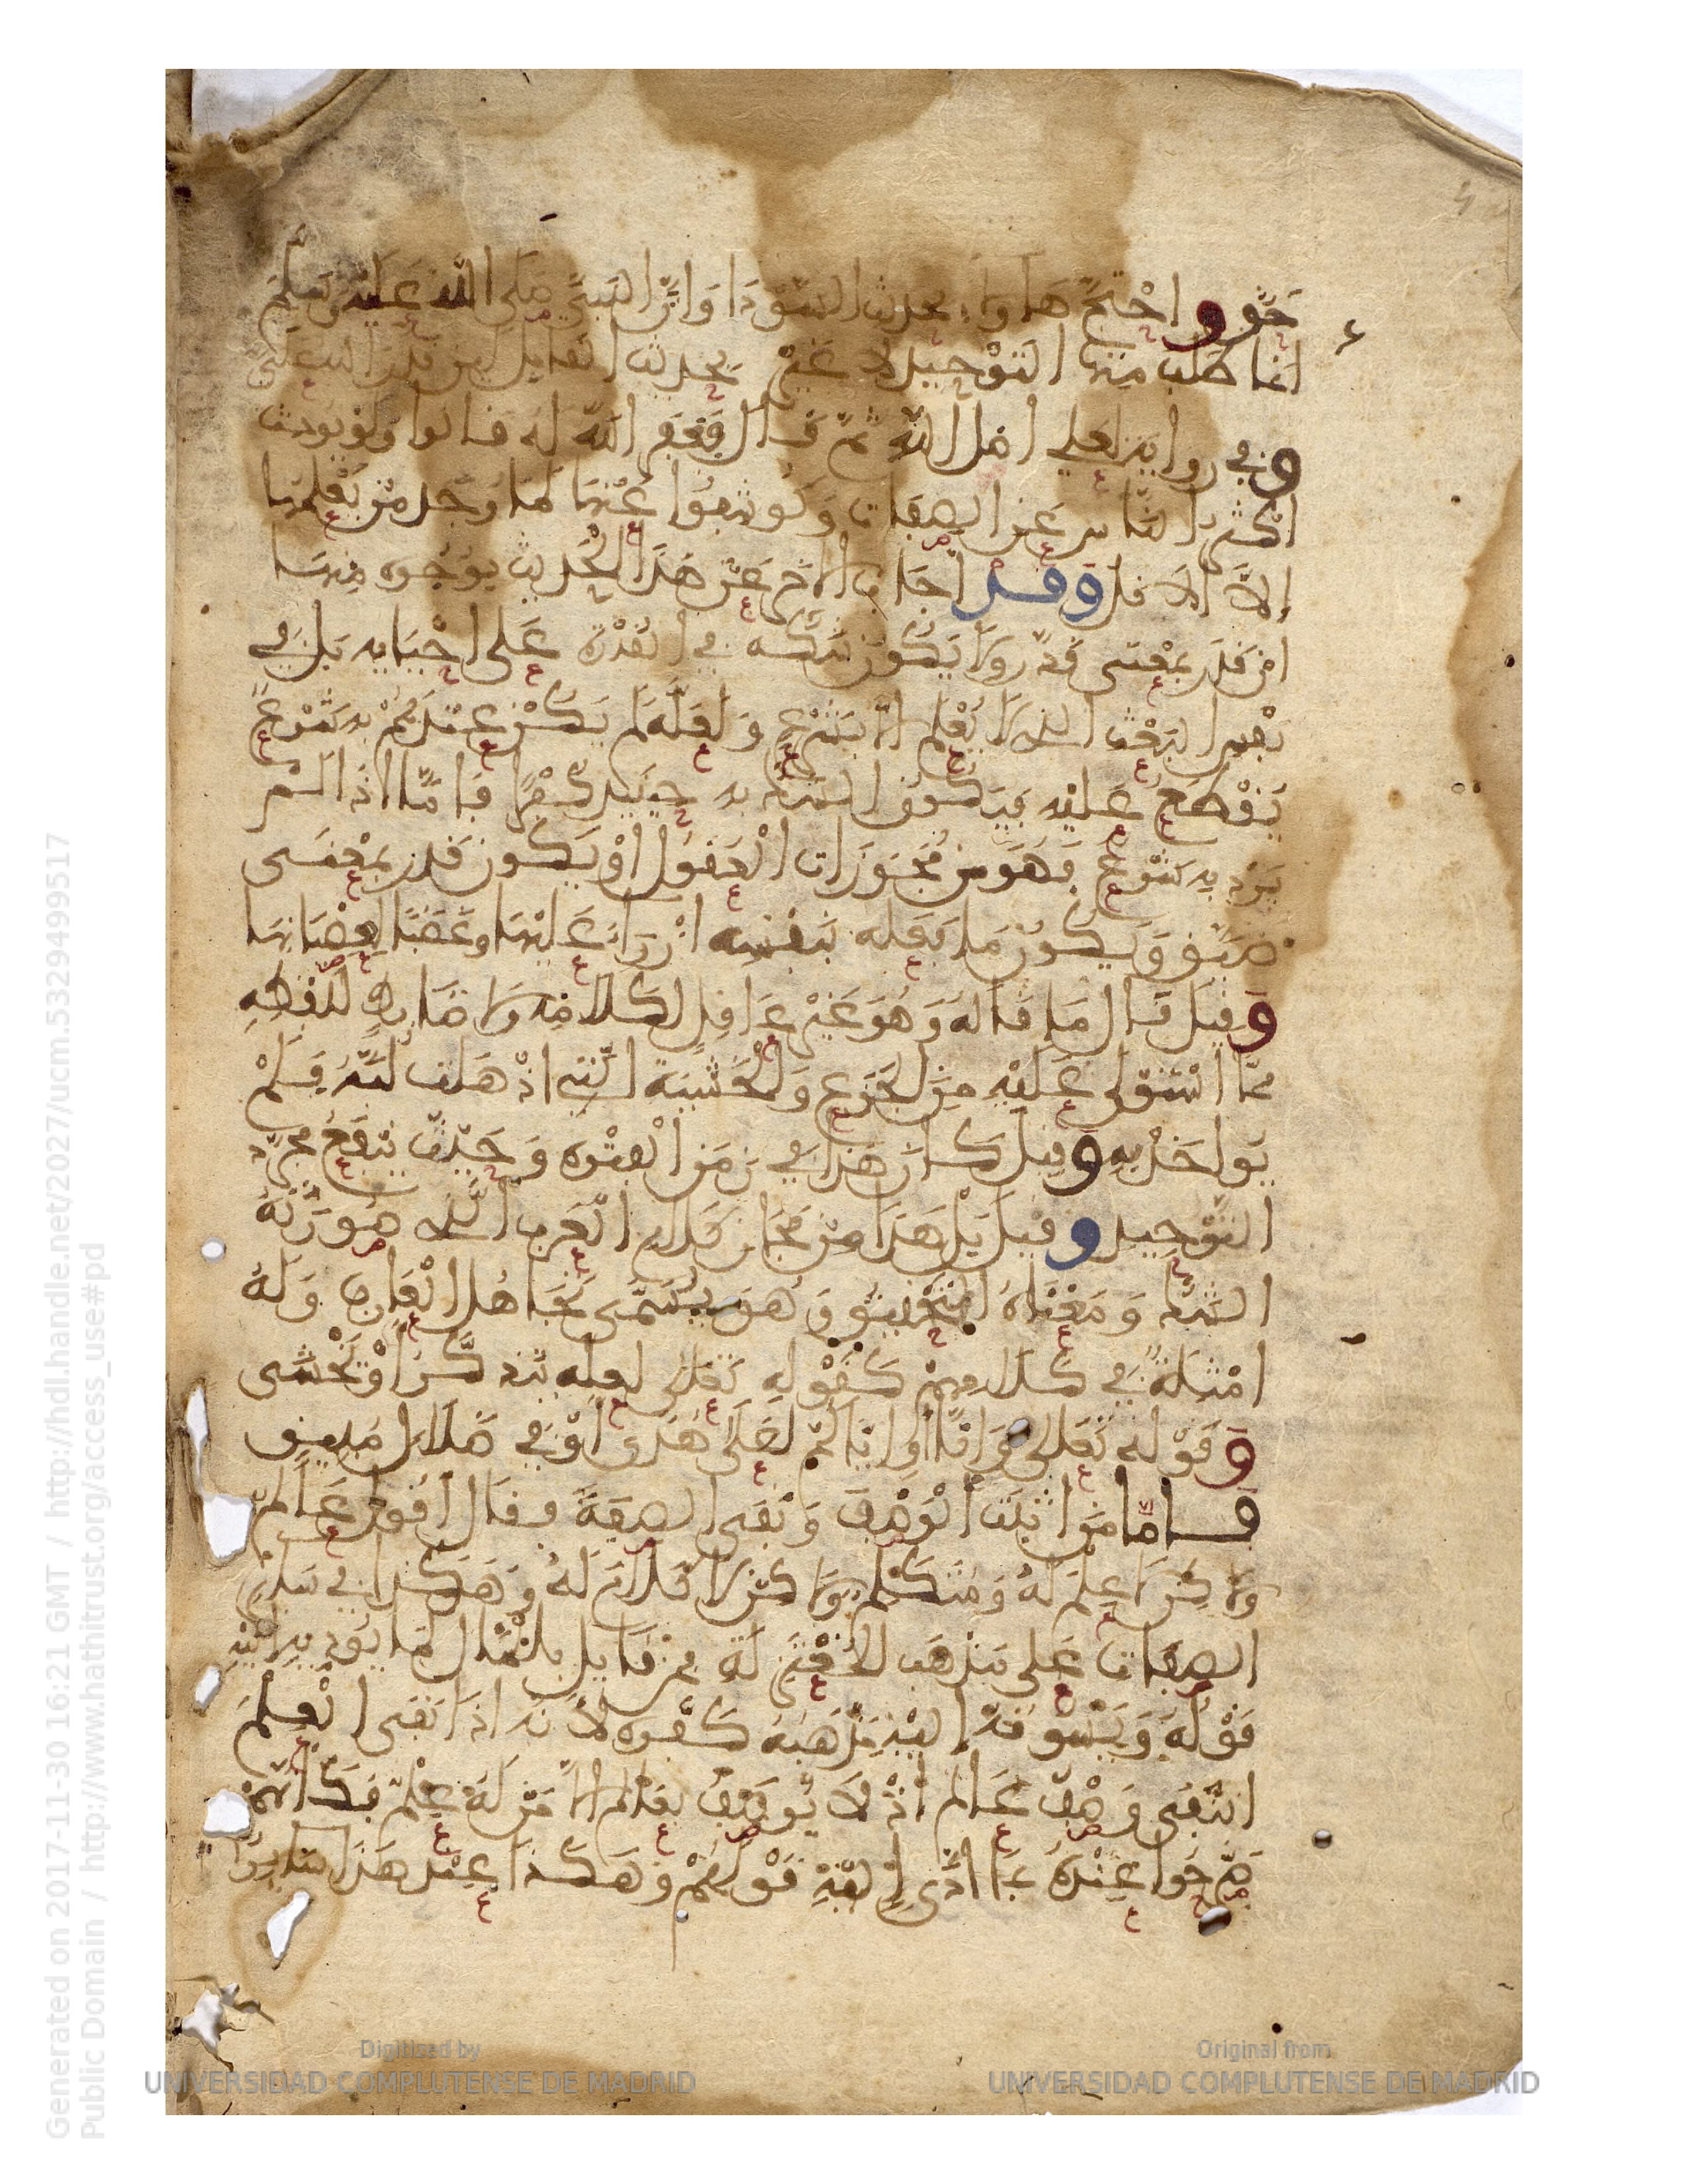 حق واحتج هاولاء بحديث السودا وان النبي صلى الله عليه وسلم
انما طلب منها التوحيد لا غير وبحديث القايل لين قدر الله علي
وفي رواية لعلي اضل الله ثم قال فغفر الله له قالوا ولو بوحث
اكثر الناس عن الصفات وكوشفوا عنها لما وجد من يعلمها
الا الاقل وقد اجاب الاخر عن هذا الحديث بوجوه منها
ان قدر بمعنى قدر ولا يكون شكه في القدرة على احيايه بل في
نفس البعث الذي لا يعلم الا بشرع ولعله لم يكن عندهم به شرع
يقطع عليه فيكون الشك به حينيذ كفرا فاما اذا لم
يرد به شرع فهو من مجوزات العقول او يكون قدر بمعنى
ضيق ويكون ما فعله بنفسه ازراء عليها وغضبا لعصيانها
وقيل قال ما قاله وهو غير عاقل لكلامه ولا ضابط للفظه
مما استولى عليه من الجزع والخشية التي اذهلت لبه فلم
يواخذ به وقيل كان هذا في زمن الفترة وحيث ينفع مجرد
التوحيد وقيل بل هذا من مجاز كلام العرب الذي صورته
الشك ومعناه التحقيق وهو يسمى تجاهل العارف وله
امثلة في كلامهم كقوله تعالى لعله يتذكر او يخشى
وقوله تعالى وانا او اياكم لعلى هدى او في ضلال مبين
فاما من اثبت الوصف ونفى الصفة فقال اقول عالم
ولا كن لا علم له ومتكلم ولا كن لا كلام له وهكذا في ساير
الصفات على مذهب المعتزلة فمن قال بالمئال لما يوديه اليه
قوله ويسوقه اليه مذهبه كفره لانه اذا نفى العلم
انتفى وصف عالم اذ لا يوصف بعالم الا من له علم فكانهم
صرحوا عنده بما ادى اليه قولهم وهكذا عند هذا ساير